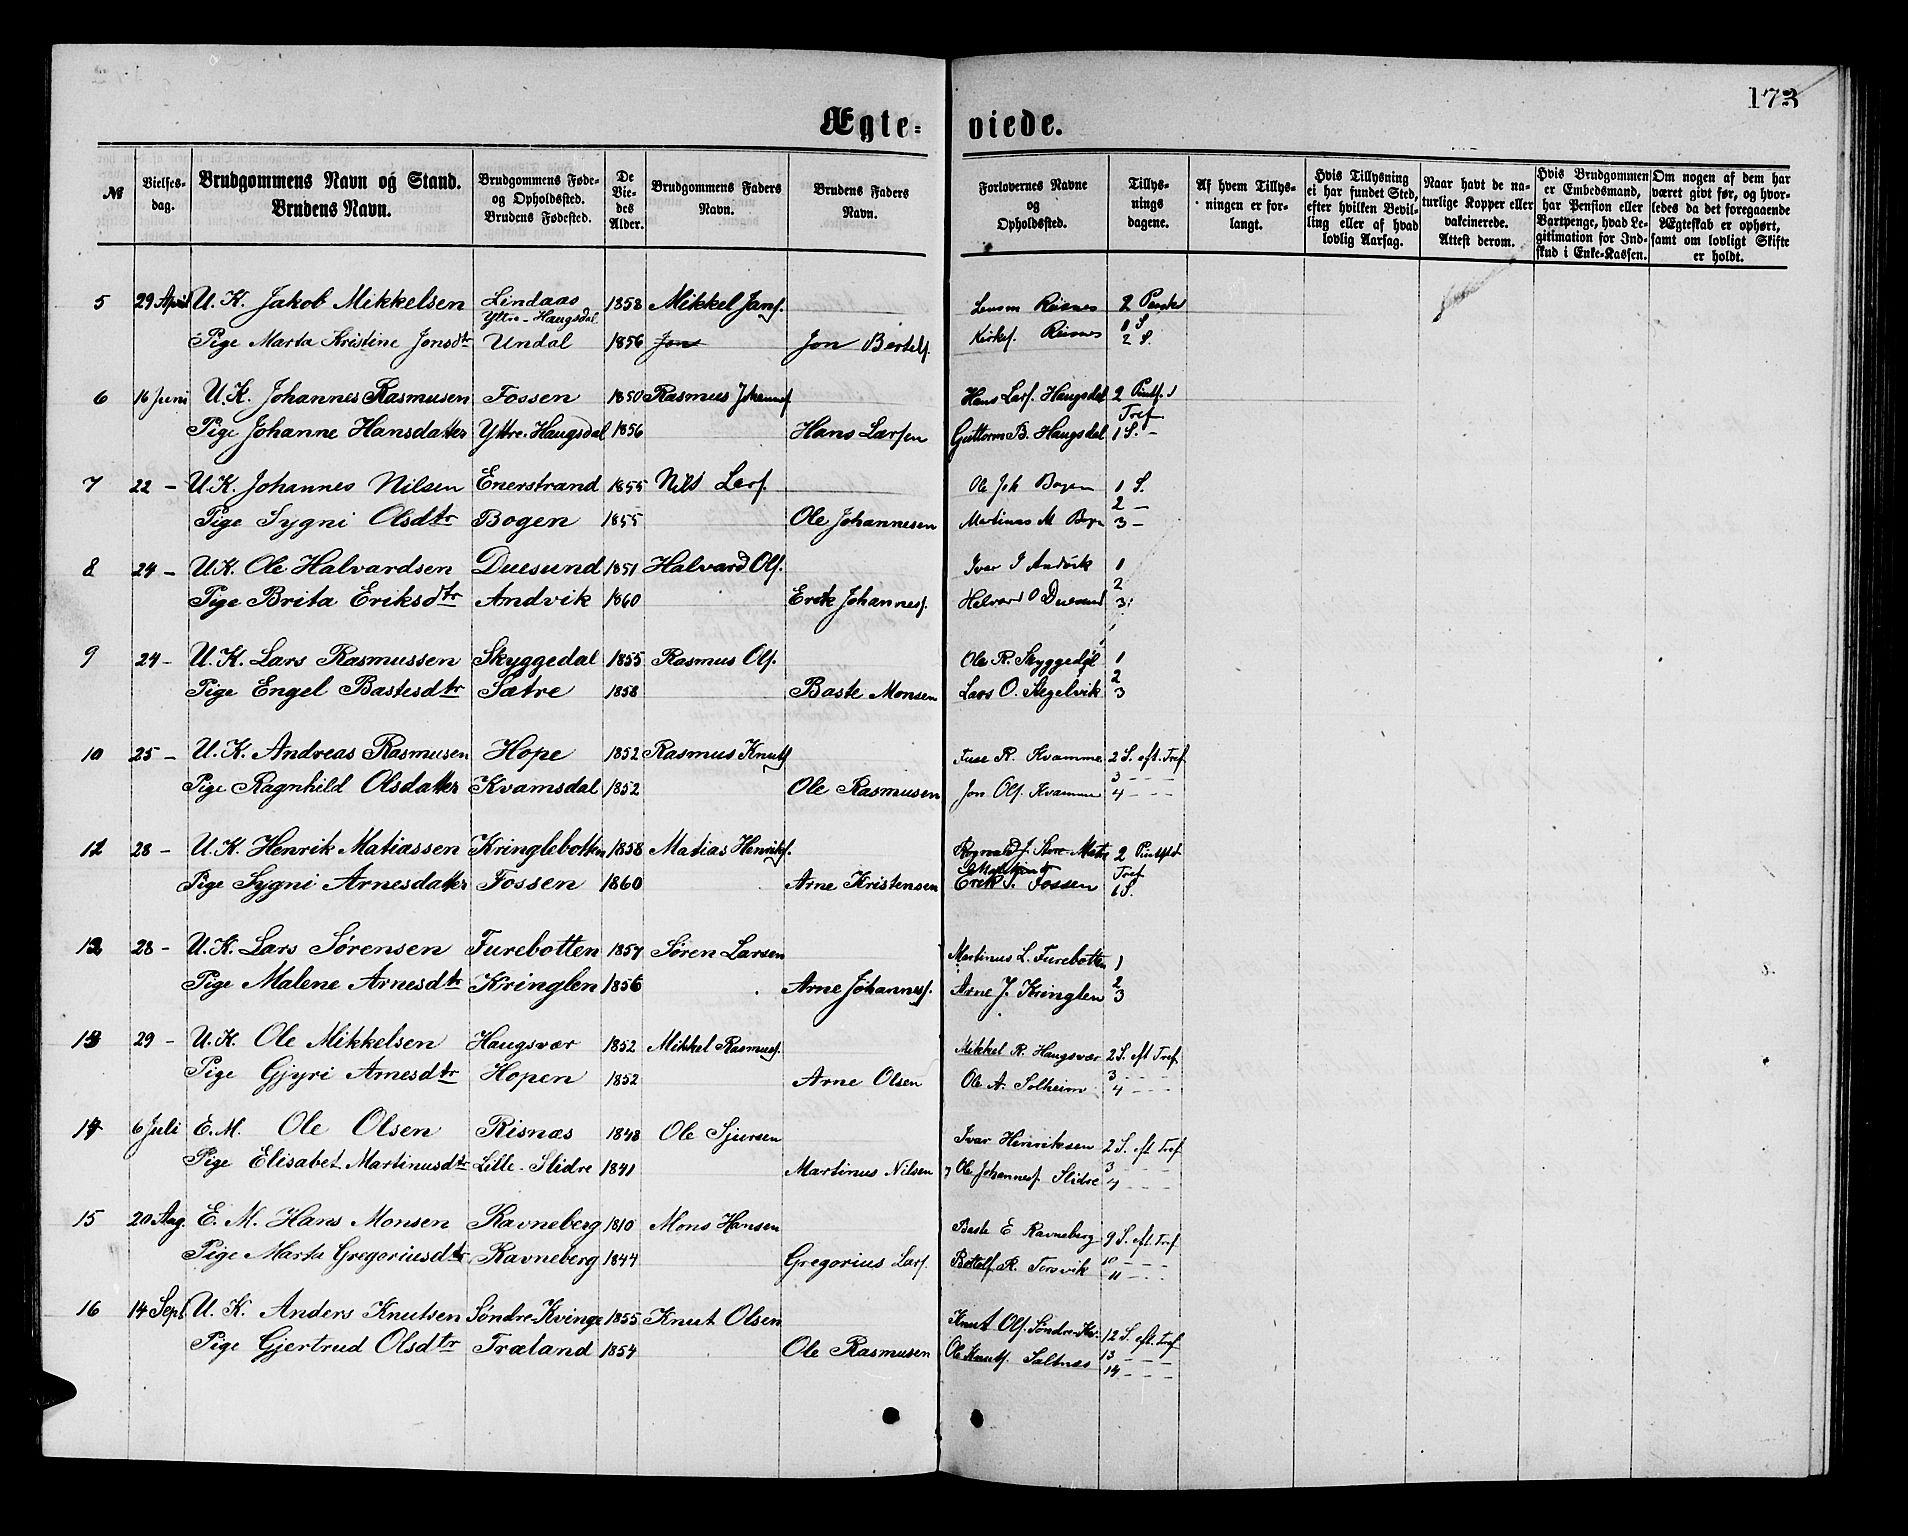 173
Ægte- viede.
№ Vielses-dag. Brudgommens Navn og Stand. Brudens Navn. Brudgommens Føde- og Opholdssted. Brudens Fødested. De Vie-des Alder. Brudgommens Faders Navn. Brudens Faders Navn. Forlovernes Navne og Opholdssted. Tillys-nings dagene. Af hvem Tillys-ningen er for-langt. Hvis Tillysning ei har fundet Sted, efter hvilken Bevil-ling eller af hvad lovlig Aarsag. Naar havt de na-turlige Kopper eller vakcinerede. Attest derom. Hvis Brudgommen er Embedsmand, har Pension eller Vartpenge, hvad Le-gitimation for Ind-skud i Enke-Kassen. Om nogen af dem har været givt før, og hvor-ledes da det foregaaende Ægteskab er ophørt, samt om lovligt Skifte er holdt.
5 29 April U. K. Jakob Mikkelsen Lindaas Yttre-Haugsdal 1858 Mikkel Jans. Lensm Risnes 2 Pinsed
Pige Marta Kristine Jonsdtr Undal 1856 Jon Jon Bertels. Kirkes. Risnes 1 S. 2 S.
6 16 Juni U. K. Johannes Rasmusen Fossen 1850 Rasmus Johannes Hans Lars. Haugsdal 2 Pintsd Tref
Pige Johanne Hansdatter Yttre-Haugsdal 1856 Hans Larsen Guttorm B. Haugsdal 1 S. -
7 22 - U. K. Johannes Nilsen Enerstrand 1855 Nils Lars. Ole Joh Bogen 1 S.
Pige Sygni Olsdtr Bogen 1855 Ole Johannesen Martinus M Boge 2 - 3 -
8 24 - U. K. Ole Halvardsen Duesund 1851 Halvard Ols. Ivar I Andvik 1
Pige Brita Eriksdtr Andvik 1860 Erik Johannes. Halvard O Duesund 2 3
9 24 - U. K. Lars Rasmussen Skyggedal 1855 Rasmus Ols. Ole R. Skyggedal 1
Pige Engel Bastesdtr Sætre 1858 Baste Monsen Lars O. Stegelvik 2 3
10 25 - U. K. Andreas Rasmusen Hope 1852 Rasmus Knuts Fuse R. Kvamme 2 S. eft. Tref
Pige Ragnhild Olsdatter Kvamsdal 1852 Ole Rasmusen Jon Ols. Kvamme 3 - - - 4 - - -
11 28 - U. K. Henrik Matiassen Kringlebotten 1858 Matias Henriks. Rognald J. Store Matre 2 Pintsd
Pige Sygni Arnesdatter Fossen 1860 Arne Kristensen Erik S. Fossen Tref 1 S.
12 28 - U. K. Lars Sørensen Furebotten 1857 Søren Larsen Martinus L. Furebotten 1
Pige Malene Arnesdtr Kringlen 1856 Arne Johannes. Arne J. Kringlen 2 3
13 29 - U. K. Ole Mikkelsen Haugsvær 1852 Mikkel Rasmus. Mikkel R. Haugsvær 2 S. eft Tref
Pige Gjyri Arnesdtr Hopen 1852 Arne Olsen Ole A. Solheim 3 - - - 4 - - -
14 6 Juli E. M. Ole Olsen Risnæs 1848 Ole Sjursen Ivar Henriksen 2 S. eft Tref
Pige Elisabet Martinusdtr Lille-Slidre 1841 Martinus Nilsen Ole Johannes. Slidre 3 - - - 4 - - -
15 20 Aug. E. M. Hans Monsen Ravneberg 1810 Mons Hansen Baste E Ravneberg 9 S. eft. Tref
Pige Marta Gregoriusdtr Ravneberg 1844 Gregorius Lars. Bottolf R. Torsvik 10 - - - 11 - - -
16 14 Sept U. K. Anders Knutsen Søndre-Kvinge 1855 Knut Olsen Knut Ols. Søndre-Kv. 12 S. eft. Tref
Pige Gjertrud Olsdtr Træland 1854 Ole Rasmusen Ole Knuts. Saltnes 13 - - - 14 - - -